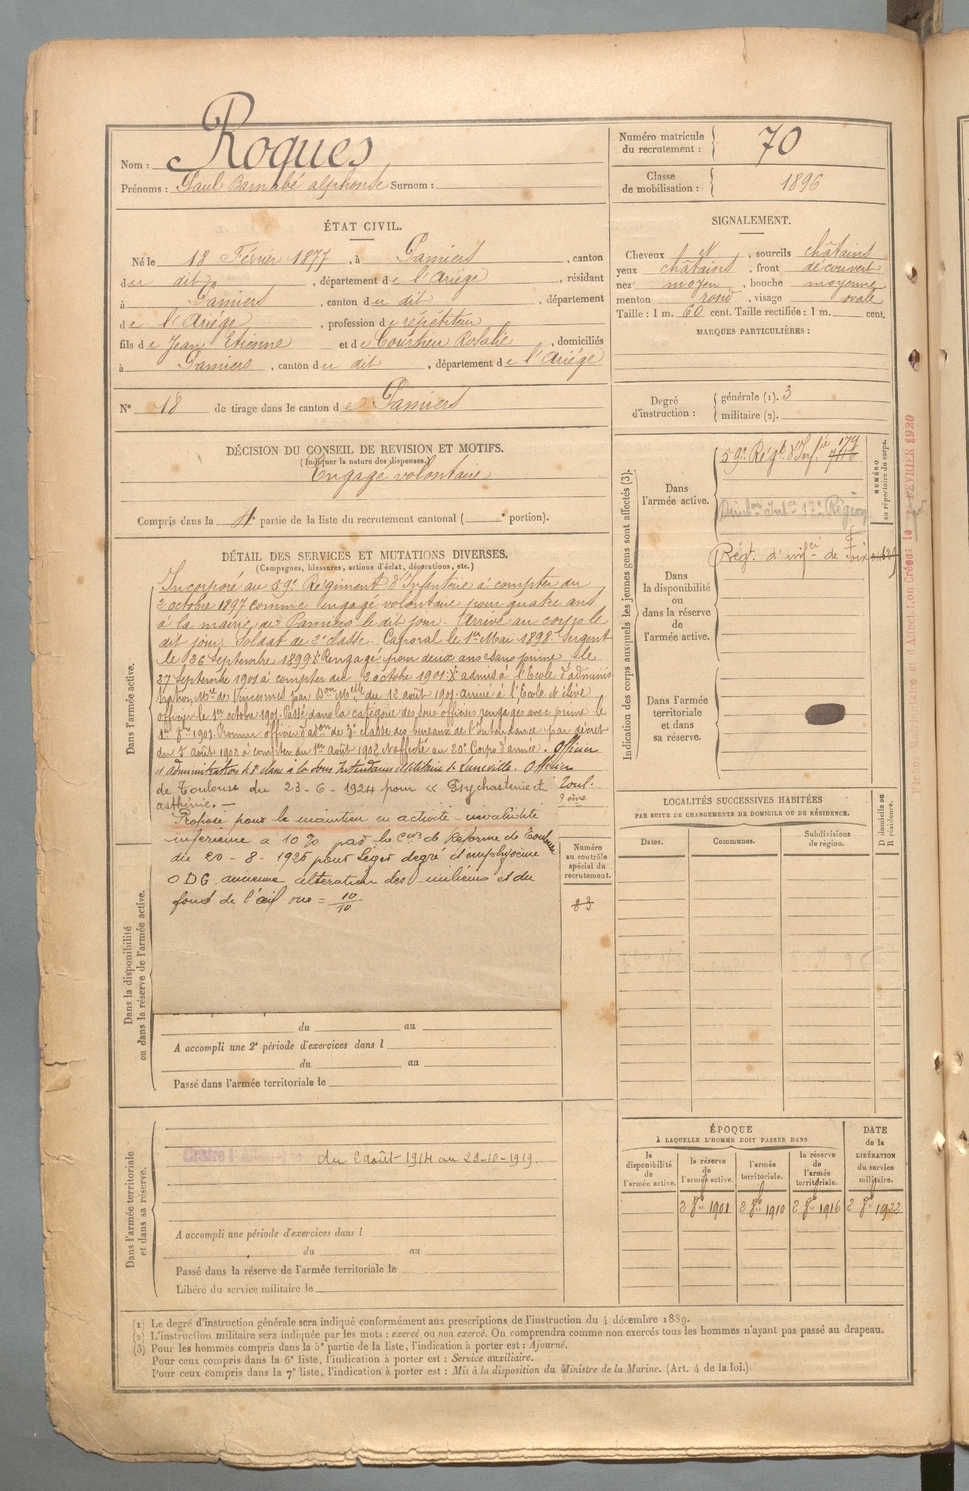 Nom : Roques
Prénoms : Paul Barnabé Alphonse Surnom :
Numéro matricule du recrutement : 70
Classe de mobilisation : 1896
ÉTAT CIVIL.
Né le 18 Février 1877, à Pamiers, canton
du dit, département de l'Ariège, résidant
à Pamiers, canton du dit, département
de l'Ariège, profession de répétiteur
fils de Jean Etienne et de Courtieu Rosalie, domiciliés
à Pamiers, canton du dit, département de l'Ariège
N° 18 de tirage dans le canton de Pamiers
SIGNALEMENT.
Cheveux et, sourcils châtains
yeux châtains, front découvert
nez moyen, bouche moyenne
menton rond, visage ovale
Taille : 1 m. 60 cent. Taille rectifiée : 1 m. cent.
MARQUES PARTICULIÈRES :
Degré d'instruction : générale (1). 3
militaire (2).
DÉCISION DU CONSEIL DE REVISION ET MOTIFS.
(Indiquer la nature des dispenses.)
Engagé volontaire
Compris dans la 4e partie de la liste du recrutement cantonal ( portion).
DÉTAIL DES SERVICES ET MUTATIONS DIVERSES.
(Campagnes, blessures, actions d'éclat, décorations, etc.)
Dans l'armée active.
Incorporé au 59e Régiment d'Infanterie à compter du
2 octobre 1897 comme engagé volontaire pour quatre ans
à la mairie de Pamiers le dit jour. Arrivé au corps le
dit jour. Soldat de 2e classe. Caporal le 1er Mai 1898. Sergent
le 26 Septembre 1899. Rengagé pour deux ans sans prime le
27 Septembre 1901 à compter du 2 octobre 1901. admis à l'Ecole d'adminis
tration Mre de Vincennes par Don Mlle du 12 août 1901. arrivé à l'Ecole et élève
officier le 1er octobre 1901. Passé dans la catégorie des sous-officiers rengagés avec prime le
1er 8bre 1901. Promu officier d'adon de 3e classe des bureaux de l'Intendance par décret
du août 1902 à compter du 1er août 1902. Affecté au 20e Corps d'armée. Officier
d'administration de 2e classe à la sous Intendance Militaire de Lunéville. Officier
de Toulouse du 23-6-1924 pour « Psychasténie et Toul.
asthénie. —
Proposé pour le maintien en activité - invalidité
inférieure à 10 % par la Cion de Réforme de Toulouse
du 20-8-1926 pour Léger degré d'emphysème
ODG. ancienne altération des milieux et du
fond de l'œil vue = 10/10
Numéro au contrôle spécial du recrutement.
83
Dans la disponibilité ou dans la réserve de l'armée active.
du au
A accompli une 2e période d'exercices dans l
du au
Passé dans l'armée territoriale le
Dans l'armée territoriale et dans sa réserve.
Contre l'Allemagne du 2 août 1914 au 22-10-1919.
A accompli une période d'exercices dans l
du au
Passé dans la réserve de l'armée territoriale le
Libéré du service militaire le
Indication des corps auxquels les jeunes gens sont affectés (3).
NUMÉRO au répertoire du corps.
Dans l'armée active.
59e Régt d'Infie 179
17e Région
Dans la disponibilité ou dans la réserve de l'armée active.
Régt d'infie de Foix
Dans l'armée territoriale et dans sa réserve.
LOCALITÉS SUCCESSIVES HABITÉES
PAR SUITE DE CHANGEMENTS DE DOMICILE OU DE RÉSIDENCE.
Dates. Communes. Subdivisions de région. D domicile ou R résidence.
ÉPOQUE
À LAQUELLE L'HOMME DOIT PASSER DANS
DATE de la LIBÉRATION du service militaire.
la disponibilité de l'armée active. la réserve de l'armée active. l'armée territoriale. la réserve de l'armée territoriale.
2 8bre 1901 2 8bre 1910 2 8bre 1916 2 8bre 1922
(1) Le degré d'instruction générale sera indiqué conformément aux prescriptions de l'instruction du 4 décembre 1889.
(2) L'instruction militaire sera indiquée par les mots : exercé ou non exercé. On comprendra comme non exercés tous les hommes n'ayant pas passé au drapeau.
(3) Pour les hommes compris dans la 5e partie de la liste, l'indication à porter est : Ajourné.
Pour ceux compris dans la 6e liste, l'indication à porter est : Service auxiliaire.
Pour ceux compris dans la 7e liste, l'indication à porter est : Mis à la disposition du Ministre de la Marine. (Art. 4 de la loi.)